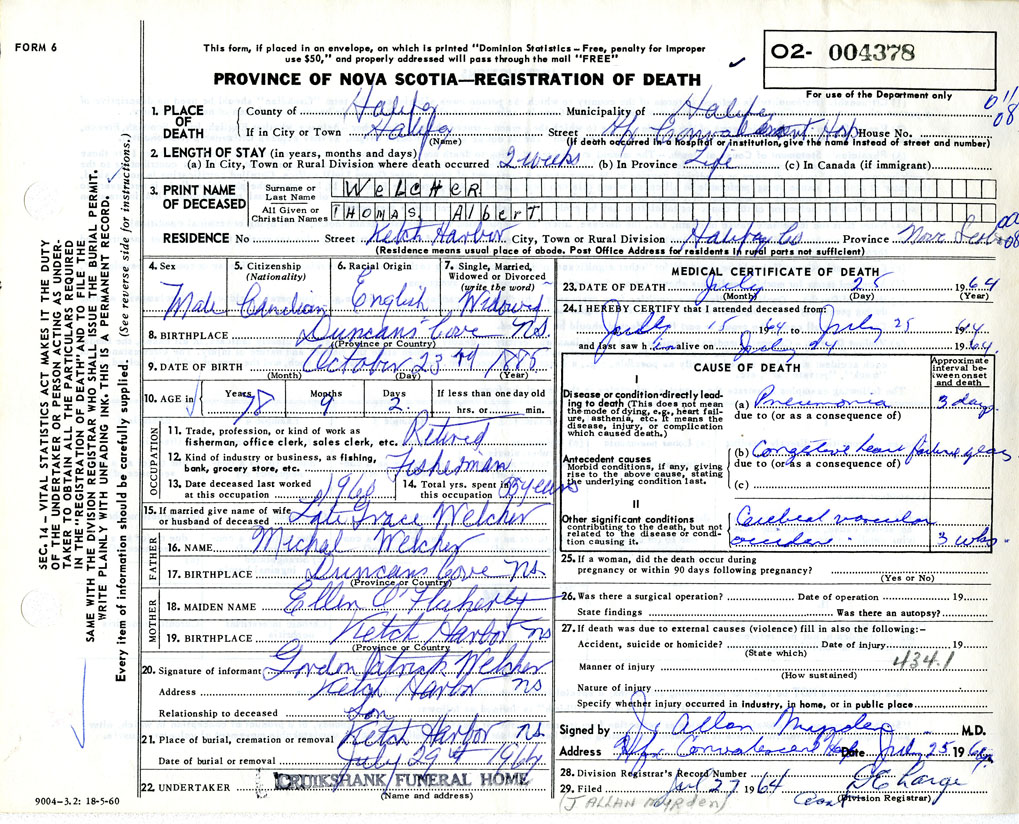 FORM 6
This form, if placed in an envelope, on which is printed "Dominion Statistics – Free, penalty for improper
use $50," and properly addressed will pass through the mail "FREE"
PROVINCE OF NOVA SCOTIA—REGISTRATION OF DEATH
02- 004378
For use of the Department only
011
08
1. PLACE OF DEATH
County of Halifax Municipality of Halifax
If in City or Town Halifax Street Hfx Convalescent Hosp House No.
(Name) (If death occurred in a hospital or institution, give the name instead of street and number)
2. LENGTH OF STAY (in years, months and days)
(a) In City, Town or Rural Division where death occurred 2 weeks (b) In Province Life (c) In Canada (if immigrant)
3. PRINT NAME OF DECEASED
Surname or Last Name WELCHER
All Given or Christian Names THOMAS Albert
RESIDENCE No Street Ketch Harbor City, Town or Rural Division Halifax Co Province Nova Scotia
08
(Residence means usual place of abode. Post Office Address for residents in rural parts not sufficient)
4. Sex Male
5. Citizenship (Nationality) Canadian
6. Racial Origin English
7. Single, Married, Widowed or Divorced (write the word) Widowed
8. BIRTHPLACE Duncans Cove NS.
(Province or Country)
9. DATE OF BIRTH October 23rd 1885
(Month) (Day) (Year)
10. AGE in Years 78 Months 9 Days 2 If less than one day old
hrs. or min.
OCCUPATION
11. Trade, profession, or kind of work as fisherman, office clerk, sales clerk, etc. Retired
12. Kind of industry or business, as fishing, bank, grocery store, etc. Fisherman
13. Date deceased last worked at this occupation 1960
14. Total yrs. spent in this occupation years
15. If married give name of wife or husband of deceased Late Grace Welcher
FATHER
16. NAME Michal Welcher
17. BIRTHPLACE Duncans Cove NS.
(Province or Country)
MOTHER
18. MAIDEN NAME Ellen O'Flaherty
19. BIRTHPLACE Ketch Harbor NS
(Province or Country)
20. Signature of informant Gordon Patrick Welcher
Address Ketch Harbor NS
Relationship to deceased Son
21. Place of burial, cremation or removal Ketch Harbor NS.
Date of burial or removal July 29th 1964
22. UNDERTAKER CRUIKSHANK FUNERAL HOME
(Name and address)
9004–3.2: 18-5-60
MEDICAL CERTIFICATE OF DEATH
23. DATE OF DEATH July 25 1964
(Month) (Day) (Year)
24. I HEREBY CERTIFY that I attended deceased from:
July 15 1964 to July 25 1964
and last saw him alive on July 24 1964.
CAUSE OF DEATH
Approximate interval between onset and death
I
Disease or condition directly leading to death (This does not mean the mode of dying, e.g., heart failure, asthenia, etc. It means the disease, injury, or complication which caused death.)
(a) Pneumonia 3 days.
due to (or as a consequence of)
Antecedent causes
Morbid conditions, if any, giving rise to the above cause, stating the underlying condition last.
(b) Congestive heart failure years
due to (or as a consequence of)
(c)
II
Other significant conditions contributing to the death, but not related to the disease or condition causing it.
Cerebral vascular
accident. 3 wks.
25. If a woman, did the death occur during pregnancy or within 90 days following pregnancy?
(Yes or No)
26. Was there a surgical operation? Date of operation 19
State findings Was there an autopsy?
27. If death was due to external causes (violence) fill in also the following:–
Accident, suicide or homicide? Date of injury 19
(State which)
434.1
Manner of injury
(How sustained)
Nature of injury
Specify whether injury occurred in industry, in home, or in public place
Signed by J. Allan Myrden M.D.
Address Hfx Convalescent Hosp Date July 25 1964
28. Division Registrar's Record Number
29. Filed Jul 27 1964
(Division Registrar)
(J ALLAN MYRDEN)
SEC. 14– VITAL STATISTICS ACT MAKES IT THE DUTY
OF THE UNDERTAKER OR PERSON ACTING AS UNDER-
TAKER TO OBTAIN ALL THE PARTICULARS REQUIRED
IN THE "REGISTRATION OF DEATH" AND TO FILE THE
SAME WITH THE DIVISION REGISTRAR WHO SHALL ISSUE THE BURIAL PERMIT.
WRITE PLAINLY WITH UNFADING INK. THIS IS A PERMANENT RECORD.
Every item of information should be carefully supplied. (See reverse side for instructions.)